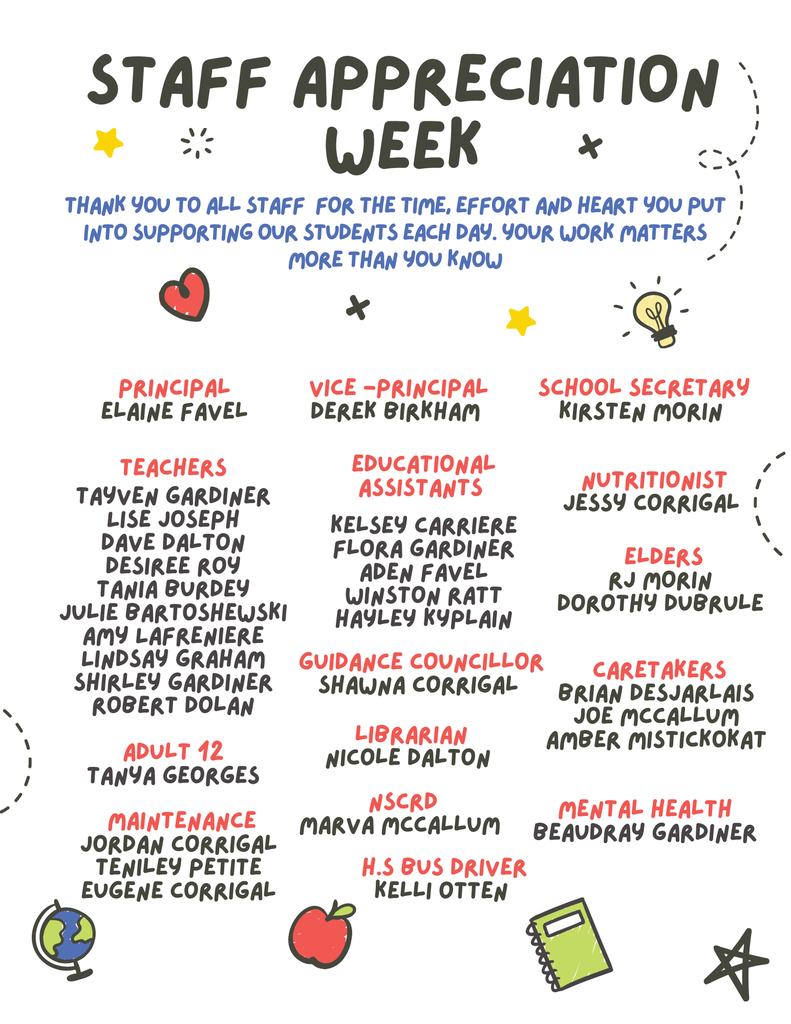 STAFF APPRECIATION
WEEK
THANK YOU TO ALL STAFF FOR THE TIME, EFFORT AND HEART YOU PUT
INTO SUPPORTING OUR STUDENTS EACH DAY. YOUR WORK MATTERS
MORE THAN YOU KNOW
PRINCIPAL
ELAINE FAVEL
VICE -PRINCIPAL
DEREK BIRKHAM
SCHOOL SECRETARY
KIRSTEN MORIN
TEACHERS
TAYVEN GARDINER
LISE JOSEPH
DAVE DALTON
DESIREE ROY
TANIA BURDEY
JULIE BARTOSHEWSKI
AMY LAFRENIERE
LINDSAY GRAHAM
SHIRLEY GARDINER
ROBERT DOLAN
ADULT 12
TANYA GEORGES
MAINTENANCE
JORDAN CORRIGAL
TENILEY PETITE
EUGENE CORRIGAL
EDUCATIONAL
ASSISTANTS
KELSEY CARRIERE
FLORA GARDINER
ADEN FAVEL
WINSTON RATT
HAYLEY KYPLAIN
GUIDANCE COUNCILLOR
SHAWNA CORRIGAL
LIBRARIAN
NICOLE DALTON
NSCRD
MARVA MCCALLUM
H.S BUS DRIVER
KELLI OTTEN
NUTRITIONIST
JESSY CORRIGAL
ELDERS
RJ MORIN
DOROTHY DUBRULE
CARETAKERS
BRIAN DESJARLAIS
JOE MCCALLUM
AMBER MISTICKOKAT
MENTAL HEALTH
BEAUDRAY GARDINER